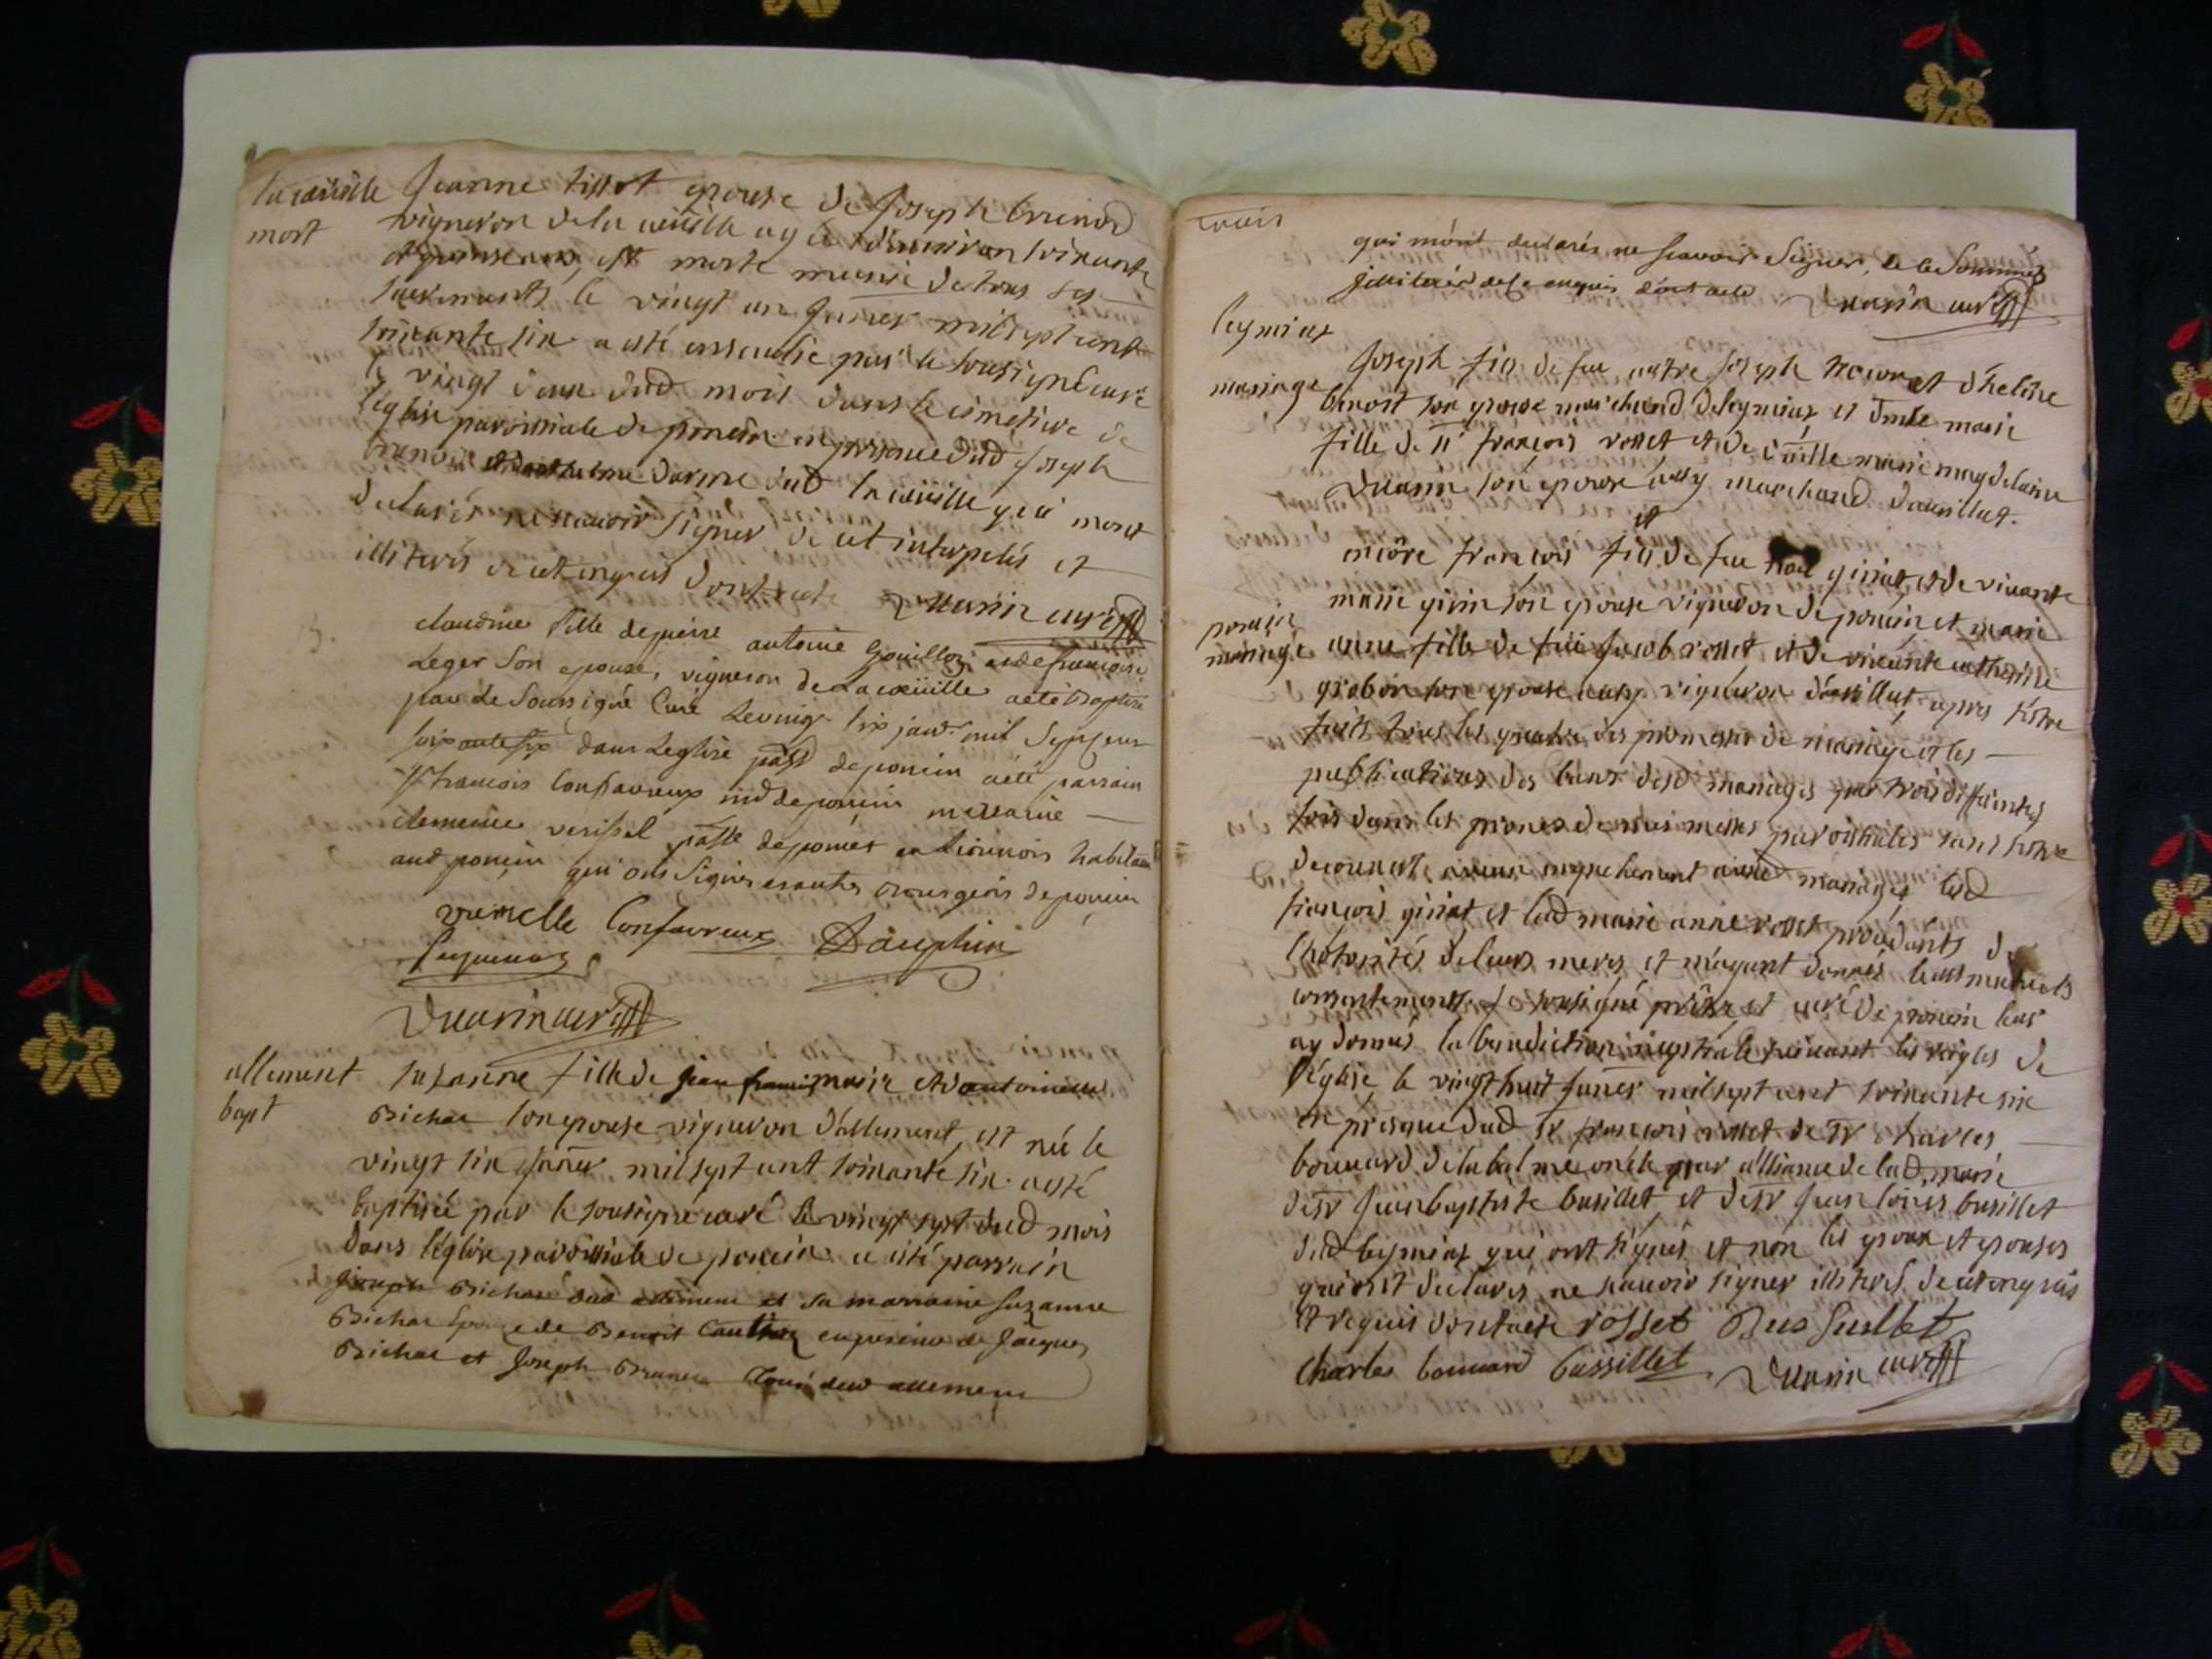 la coeüille Jeanne tissot epouse de Joseph brunod
mort vigneron de la coeüille agée d'environ soixante
et quinse ans, est morte munie de tous ses
sacrements le vingt un janvier mil sept cent
soixante six a esté ensevelie par le soussigné curé
le vingt deux dud mois dans le cimetiere de
l'église paroissiale de poncin en presence dud joseph
brunod dud la coeüille qui mont
declarés ne scavoir signer de ce interpelés et
illiterés de ce enquis dont acte Duarin curé
claudine fille de pierre antoine Gouilloz et de françoise
Leger Son epouse, vigneron de La coeüille a eté baptisé
par Le Soussigné Curé Le vingt six janr mil Sept cent
soixante six dans Leglise de poncin a eté parrain
françois Confavreux md de poncin marraine
clemence habitant
aud poncin qui ont Signés bourgeois de poncin
Confavreux Dauphin
Duarin curé
allement suzanne fille de jean marie et d'antoinette
bapt Bichat son epouse vigneron d'allement, est née le
vingt six janer mil sept cent soixante six a esté
baptisée par le soussigné curé le vingt sept dud mois
dans l'église paroissiale de poncin a eté parrain
joseph Bichat dud allement et sa marraine suzanne
Bichat epouse de Benoit en presence de jacques
Bichat et joseph Brunet tous dud allement
trois
qui m'ont declarés ne scavoir Signer, de ce Sommés
illiterés de ce enquis dont acte Duarin curé
leymiat
mariage Joseph fils de feu autre joseph et d'heleine
benoit son epouse marchand de leymiat et Dmlle marie
fille de Sr françois rosset et de marie magdelaine
Duarin son epouse aussy marchand d'avrillat.
et
encôre françois fils de feu giriat et de vivante
marie girin son epouse vigneron de poncin et marie
poncin
mariage anne fille de feu jacob rosset et de vivante catherine
grobon son epouse aussy vigneron d'avrillat, apres s'estre
faits tous les quatre des promesses de mariage et les
publications des bans desd mariages par trois differentes
fois dans les prones de nos messes paroissiales sans s'estre
decouvert aucun empechement auxd mariages lesd
françois giriat et lad marie anne rosset procedants de
l'authorités de leurs meres, et m'ayant donnés leurs mutuels
consentements je soussigné prêtre et curé de poncin leur
ay donnés la benediction nuptiale suivant les regles de
l'église le vingt huit janer mil sept cent soixante six
en presence dud Sr françois rosset de Sr charles
bouvard de la balme oncle par alliance de lad marie
de Sr jean baptiste busillet et de Sr jean louis busillet
dud leymiat qui ont signés et non les epoux et epouses
qui ont declarés ne scavoir signer illiterés de ce enquis
et requis dont acte rosset Bussuillet
Charles bouvard bussillet Duarin curé